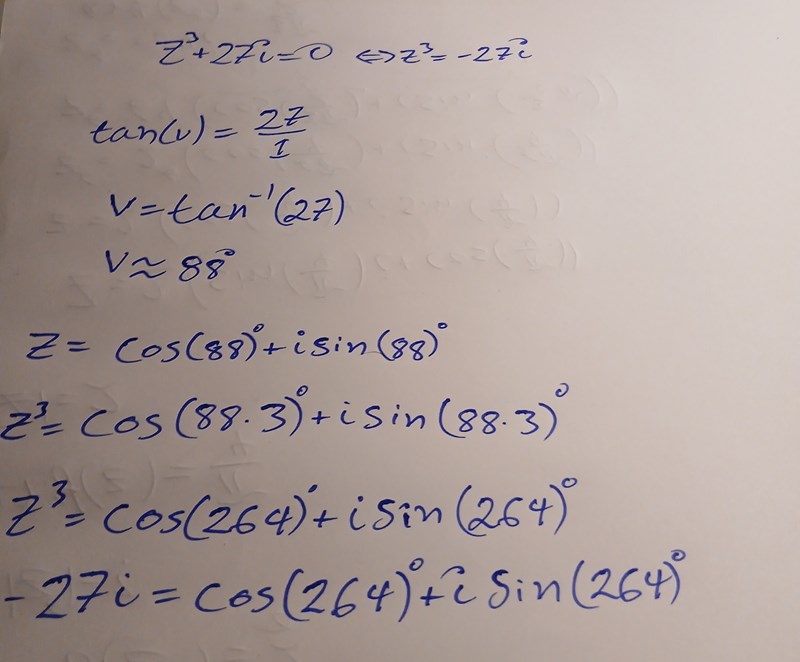 z³+27i=0 ⇔ z³=-27i
tan(v) = 27/1
v=tan⁻¹(27)
v≈88°
z= cos(88)°+i sin(88)°
z³= cos(88·3)°+i sin(88·3)°
z³= cos(264)°+i sin(264)°
-27i = cos(264)°+i sin(264)°